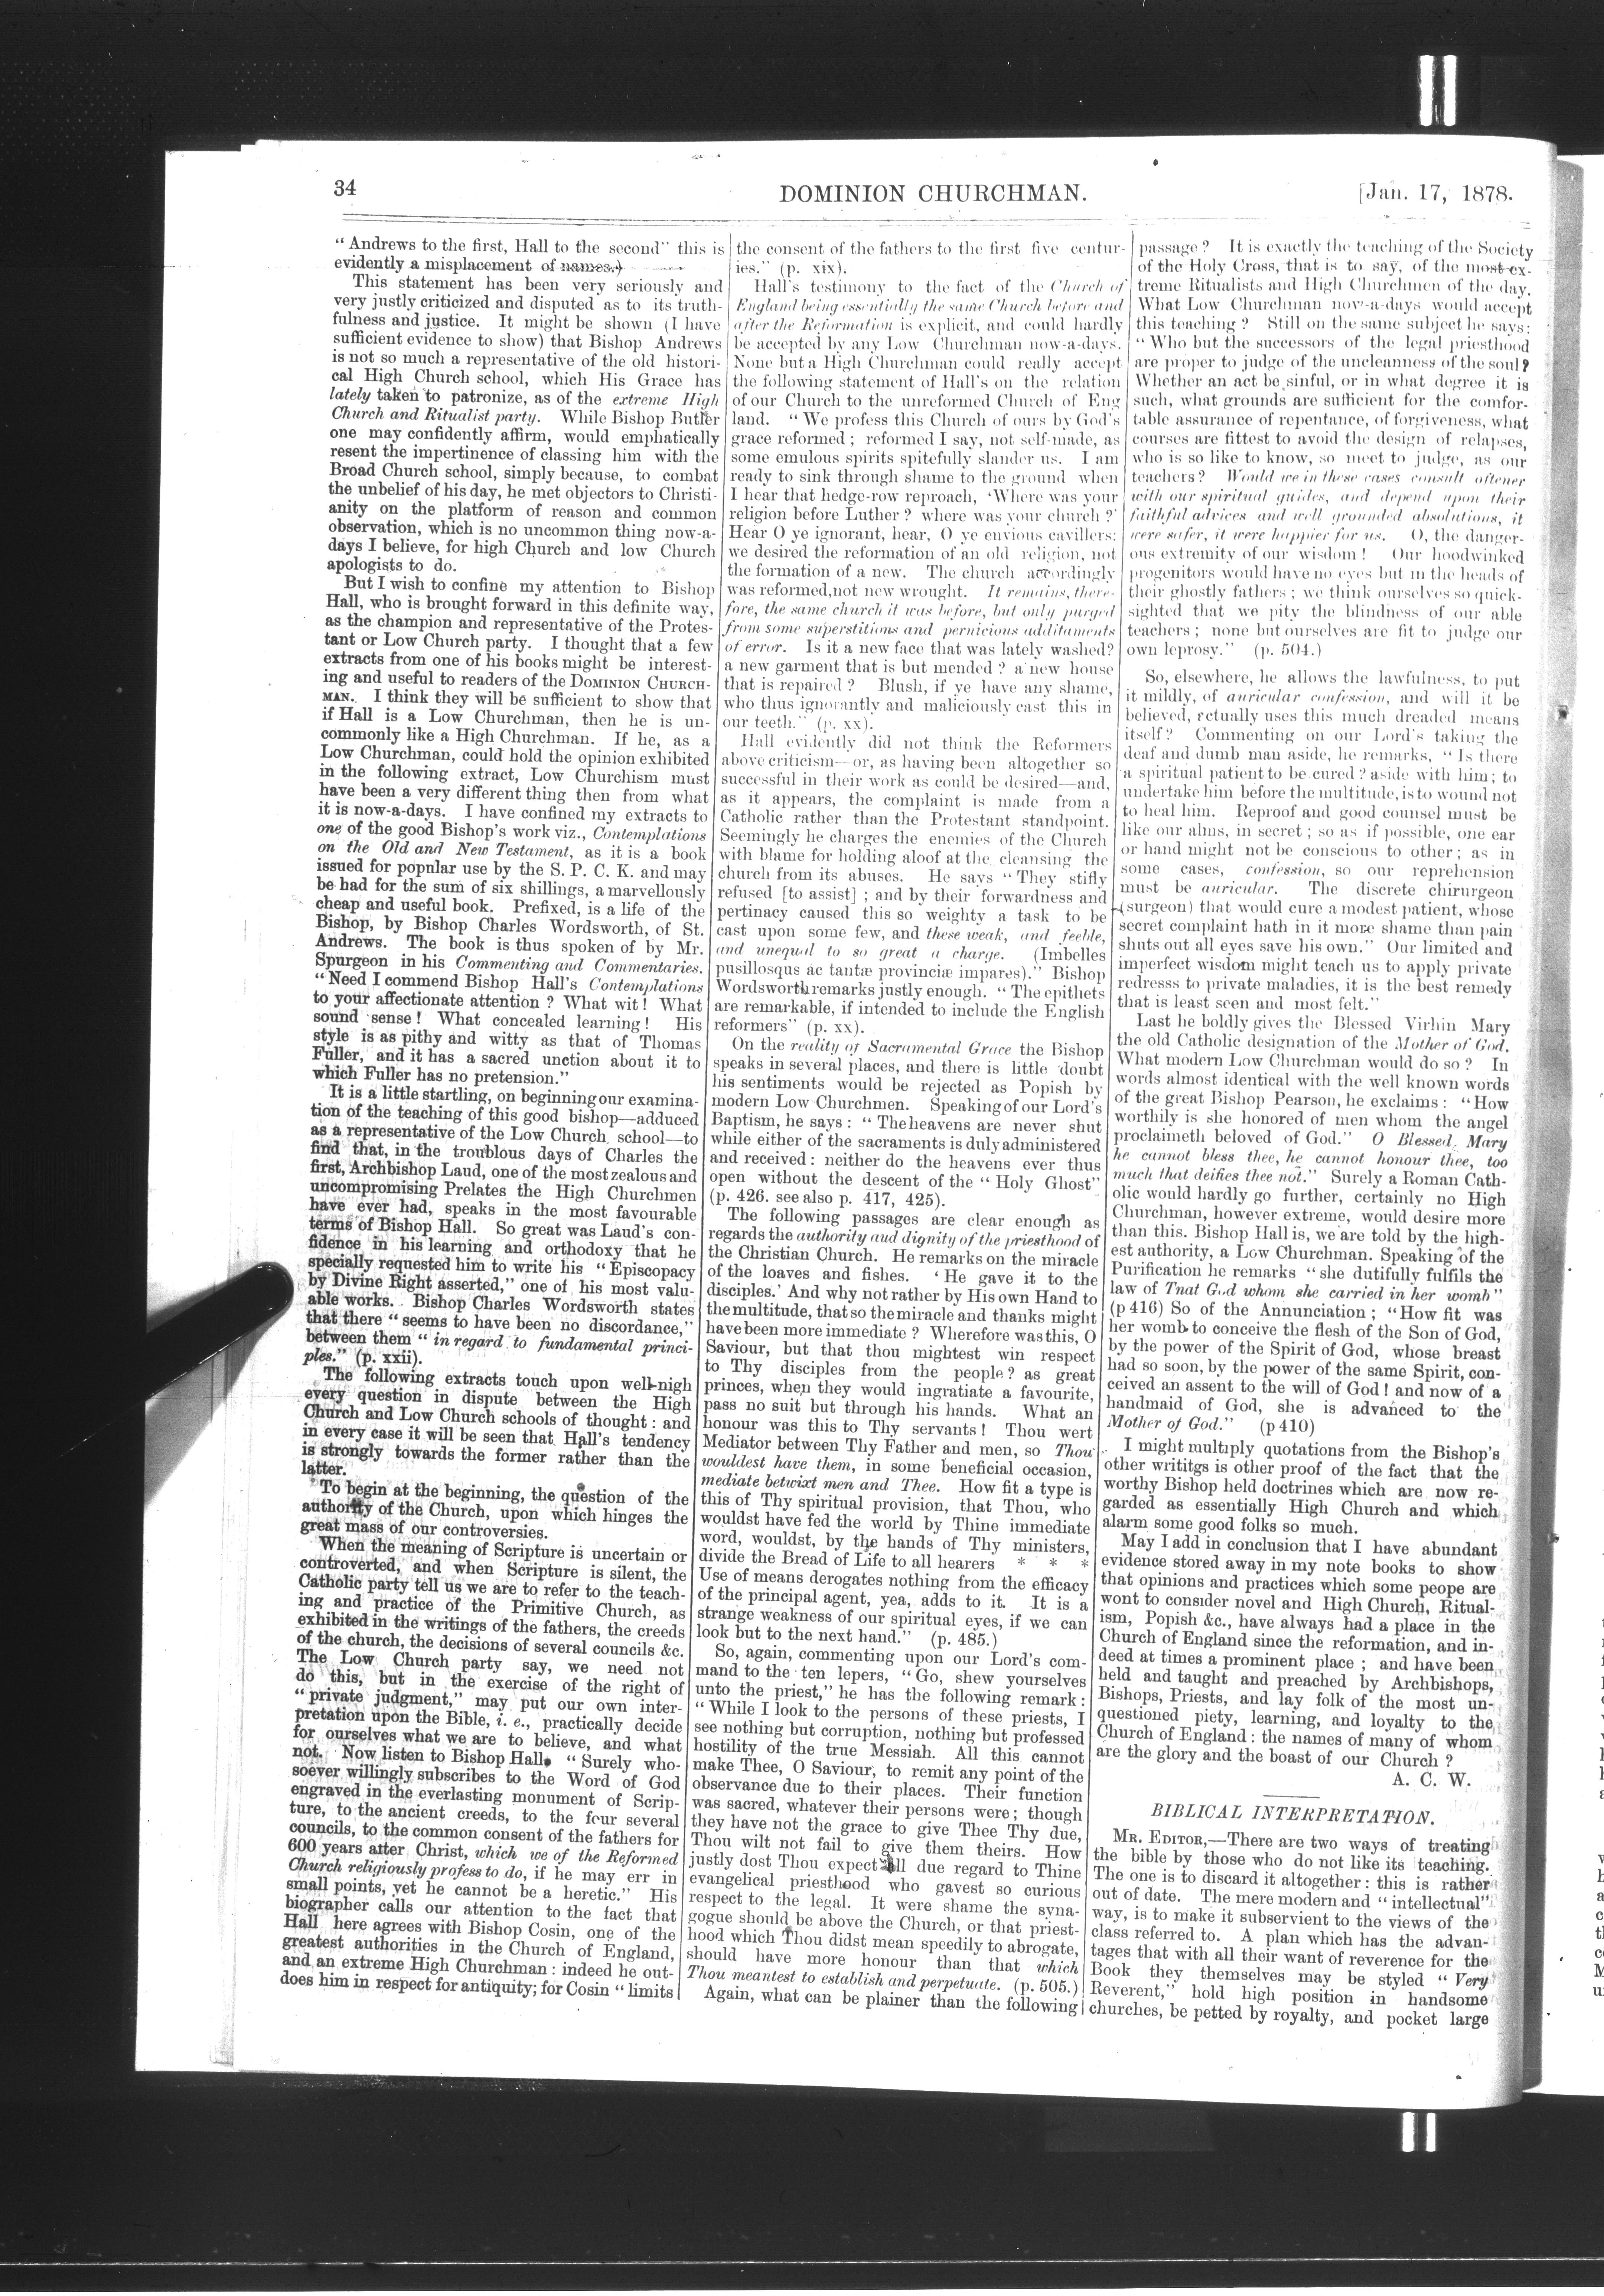 34
DOMINION CHURCHMAN.
[Jan. 17, 1878.
"Andrews to the first, Hall to the second" this is
evidently a misplacement of names.)
This statement has been very seriously and
very justly criticized and disputed as to its truth-
fulness and justice. It might be shown (I have
sufficient evidence to show) that Bishop Andrews
is not so much a representative of the old histori-
cal High Church school, which His Grace has
lately taken to patronize, as of the extreme High
Church and Ritualist party. While Bishop Butler
one may confidently affirm, would emphatically
resent the impertinence of classing him with the
Broad Church school, simply because, to combat
the unbelief of his day, he met objectors to Christi-
anity on the platform of reason and common
observation, which is no uncommon thing now-a-
days I believe, for high Church and low Church
apologists to do.
But I wish to confine my attention to Bishop
Hall, who is brought forward in this definite way,
as the champion and representative of the Protes-
tant or Low Church party. I thought that a few
extracts from one of his books might be interest-
ing and useful to readers of the DOMINION CHURCH-
MAN. I think they will be sufficient to show that
if Hall is a Low Churchman, then he is un-
commonly like a High Churchman. If he, as a
Low Churchman, could hold the opinion exhibited
in the following extract, Low Churchism must
have been a very different thing then from what
it is now-a-days. I have confined my extracts to
one of the good Bishop's work viz., Contemplations
on the Old and New Testament, as it is a book
issued for popular use by the S. P. C. K. and may
be had for the sum of six shillings, a marvellously
cheap and useful book. Prefixed, is a life of the
Bishop, by Bishop Charles Wordsworth, of St.
Andrews. The book is thus spoken of by Mr.
Spurgeon in his Commenting and Commentaries.
"Need I commend Bishop Hall's Contemplations
to your affectionate attention? What wit! What
sound sense! What concealed learning! His
style is as pithy and witty as that of Thomas
Fuller, and it has a sacred unction about it to
which Fuller has no pretension."
It is a little startling, on beginning our examina-
tion of the teaching of this good bishop—adduced
as a representative of the Low Church school—to
find that, in the troublous days of Charles the
first, Archbishop Laud, one of the most zealous and
uncompromising Prelates the High Churchmen
have ever had, speaks in the most favourable
terms of Bishop Hall. So great was Laud's con-
fidence in his learning and orthodoxy that he
specially requested him to write his "Episcopacy
by Divine Right asserted," one of his most valu-
able works. Bishop Charles Wordsworth states
that there "seems to have been no discordance,"
between them "in regard to fundamental princi-
ples." (p. xxii).
The following extracts touch upon well-nigh
every question in dispute between the High
Church and Low Church schools of thought: and
in every case it will be seen that Hall's tendency
is strongly towards the former rather than the
latter.
To begin at the beginning, the question of the
authority of the Church, upon which hinges the
great mass of our controversies.
When the meaning of Scripture is uncertain or
controverted, and when Scripture is silent, the
Catholic party tell us we are to refer to the teach-
ing and practice of the Primitive Church, as
exhibited in the writings of the fathers, the creeds
of the church, the decisions of several councils &c.
The Low Church party say, we need not
do this, but in the exercise of the right of
"private judgment," may put our own inter-
pretation upon the Bible, i. e., practically decide
for ourselves what we are to believe, and what
not. Now listen to Bishop Hall. "Surely who-
soever willingly subscribes to the Word of God
engraved in the everlasting monument of Scrip-
ture, to the ancient creeds, to the four several
councils, to the common consent of the fathers for
600 years after Christ, which we of the Reformed
Church religiously profess to do, if he may err in
small points, yet he cannot be a heretic." His
biographer calls our attention to the fact that
Hall here agrees with Bishop Cosin, one of the
greatest authorities in the Church of England,
and an extreme High Churchman: indeed he out-
does him in respect for antiquity; for Cosin "limits
the consent of the fathers to the first five centur-
ies." (p. xix).
Hall's testimony to the fact of the Church of
England being essentially the same Church before and
after the Reformation is explicit, and could hardly
be accepted by any Low Churchman now-a-days.
None but a High Churchman could really accept
the following statement of Hall's on the relation
of our Church to the unreformed Church of Eng
land. "We profess this Church of ours by God's
grace reformed; reformed I say, not self-made, as
some emulous spirits spitefully slander us. I am
ready to sink through shame to the ground when
I hear that hedge-row reproach, 'Where was your
religion before Luther? where was your church?'
Hear O ye ignorant, hear, O ye envious cavillers:
we desired the reformation of an old religion, not
the formation of a new. The church accordingly
was reformed, not new wrought. It remains, there-
fore, the same church it was before, but only purged
from some superstitions and pernicious additaments
of error. Is it a new face that was lately washed?
a new garment that is but mended? a new house
that is repaired? Blush, if ye have any shame,
who thus ignorantly and maliciously cast this in
our teeth." (p. xx).
Hall evidently did not think the Reformers
above criticism—or, as having been altogether so
successful in their work as could be desired—and,
as it appears, the complaint is made from a
Catholic rather than the Protestant standpoint.
Seemingly he charges the enemies of the Church
with blame for holding aloof at the cleansing the
church from its abuses. He says "They stifly
refused [to assist]; and by their forwardness and
pertinacy caused this so weighty a task to be
cast upon some few, and these weak, and feeble,
and unequal to so great a charge. (Imbelles
pusillosqus ac tantæ provinciæ impares)." Bishop
Wordsworth remarks justly enough. "The epithets
are remarkable, if intended to include the English
reformers" (p. xx).
On the reality of Sacramental Grace the Bishop
speaks in several places, and there is little doubt
his sentiments would be rejected as Popish by
modern Low Churchmen. Speaking of our Lord's
Baptism, he says: "The heavens are never shut
while either of the sacraments is duly administered
and received: neither do the heavens ever thus
open without the descent of the "Holy Ghost"
(p. 426. see also p. 417, 425).
The following passages are clear enough as
regards the authority aud dignity of the priesthood of
the Christian Church. He remarks on the miracle
of the loaves and fishes. 'He gave it to the
disciples.' And why not rather by His own Hand to
the multitude, that so the miracle and thanks might
have been more immediate? Wherefore was this, O
Saviour, but that thou mightest win respect
to Thy disciples from the people? as great
princes, when they would ingratiate a favourite,
pass no suit but through his hands. What an
honour was this to Thy servants! Thou wert
Mediator between Thy Father and men, so Thou
wouldest have them, in some beneficial occasion,
mediate betwixt men and Thee. How fit a type is
this of Thy spiritual provision, that Thou, who
wouldst have fed the world by Thine immediate
word, wouldst, by the hands of Thy ministers,
divide the Bread of Life to all hearers * * *
Use of means derogates nothing from the efficacy
of the principal agent, yea, adds to it. It is a
strange weakness of our spiritual eyes, if we can
look but to the next hand." (p. 485.)
So, again, commenting upon our Lord's com-
mand to the ten lepers, "Go, shew yourselves
unto the priest," he has the following remark:
"While I look to the persons of these priests, I
see nothing but corruption, nothing but professed
hostility of the true Messiah. All this cannot
make Thee, O Saviour, to remit any point of the
observance due to their places. Their function
was sacred, whatever their persons were; though
they have not the grace to give Thee Thy due,
Thou wilt not fail to give them theirs. How
justly dost Thou expect all due regard to Thine
evangelical priesthood who gavest so curious
respect to the legal. It were shame the syna-
gogue should be above the Church, or that priest-
hood which Thou didst mean speedily to abrogate,
should have more honour than that which
Thou meantest to establish and perpetuate. (p. 505.)
Again, what can be plainer than the following
passage? It is exactly the teaching of the Society
of the Holy Cross, that is to say, of the most ex-
treme Ritualists and High Churchmen of the day.
What Low Churchman now-a-days would accept
this teaching? Still on the same subject he says:
"Who but the successors of the legal priesthood
are proper to judge of the uncleanness of the soul?
Whether an act be sinful, or in what degree it is
such, what grounds are sufficient for the comfor-
table assurance of repentance, of forgiveness, what
courses are fittest to avoid the design of relapses,
who is so like to know, so meet to judge, as our
teachers? Would we in these cases consult oftener
with our spiritual guides, and depend upon their
faithful advices and well grounded absolutions, it
were safer, it were happier for us. O, the danger-
ous extremity of our wisdom! Our hoodwinked
progenitors would have no eyes but in the heads of
their ghostly fathers; we think ourselves so quick-
sighted that we pity the blindness of our able
teachers; none but ourselves are fit to judge our
own leprosy." (p. 504.)
So, elsewhere, he allows the lawfulness, to put
it mildly, of auricular confession, and will it be
believed, actually uses this much dreaded means
itself? Commenting on our Lord's taking the
deaf and dumb man aside, he remarks, "Is there
a spiritual patient to be cured? aside with him; to
undertake him before the multitude, is to wound not
to heal him. Reproof and good counsel must be
like our alms, in secret; so as if possible, one ear
or hand might not be conscious to other; as in
some cases, confession, so our reprehension
must be auricular. The discrete chirurgeon
(surgeon) that would cure a modest patient, whose
secret complaint hath in it more shame than pain
shuts out all eyes save his own." Our limited and
imperfect wisdom might teach us to apply private
redresss to private maladies, it is the best remedy
that is least seen and most felt."
Last he boldly gives the Blessed Virhin Mary
the old Catholic designation of the Mother of God.
What modern Low Churchman would do so? In
words almost identical with the well known words
of the great Bishop Pearson, he exclaims: "How
worthily is she honored of men whom the angel
proclaimeth beloved of God." O Blessed Mary
he cannot bless thee, he cannot honour thee, too
much that deifies thee not." Surely a Roman Cath-
olic would hardly go further, certainly no High
Churchman, however extreme, would desire more
than this. Bishop Hall is, we are told by the high-
est authority, a Low Churchman. Speaking of the
Purification he remarks "she dutifully fulfils the
law of Tnat God whom she carried in her womb"
(p 416) So of the Annunciation; "How fit was
her womb to conceive the flesh of the Son of God,
by the power of the Spirit of God, whose breast
had so soon, by the power of the same Spirit, con-
ceived an assent to the will of God! and now of a
handmaid of God, she is advanced to the
Mother of God." (p 410)
I might multiply quotations from the Bishop's
other writitgs is other proof of the fact that the
worthy Bishop held doctrines which are now re-
garded as essentially High Church and which
alarm some good folks so much.
May I add in conclusion that I have abundant
evidence stored away in my note books to show
that opinions and practices which some peope are
wont to consider novel and High Church, Ritual-
ism, Popish &c., have always had a place in the
Church of England since the reformation, and in-
deed at times a prominent place; and have been
held and taught and preached by Archbishops,
Bishops, Priests, and lay folk of the most un-
questioned piety, learning, and loyalty to the
Church of England: the names of many of whom
are the glory and the boast of our Church?
A. C. W.
BIBLICAL INTERPRETATION.
MR. EDITOR,—There are two ways of treating
the bible by those who do not like its teaching.
The one is to discard it altogether: this is rather
out of date. The mere modern and "intellectual"
way, is to make it subservient to the views of the
class referred to. A plan which has the advan-
tages that with all their want of reverence for the
Book they themselves may be styled "Very
Reverent," hold high position in handsome
churches, be petted by royalty, and pocket large